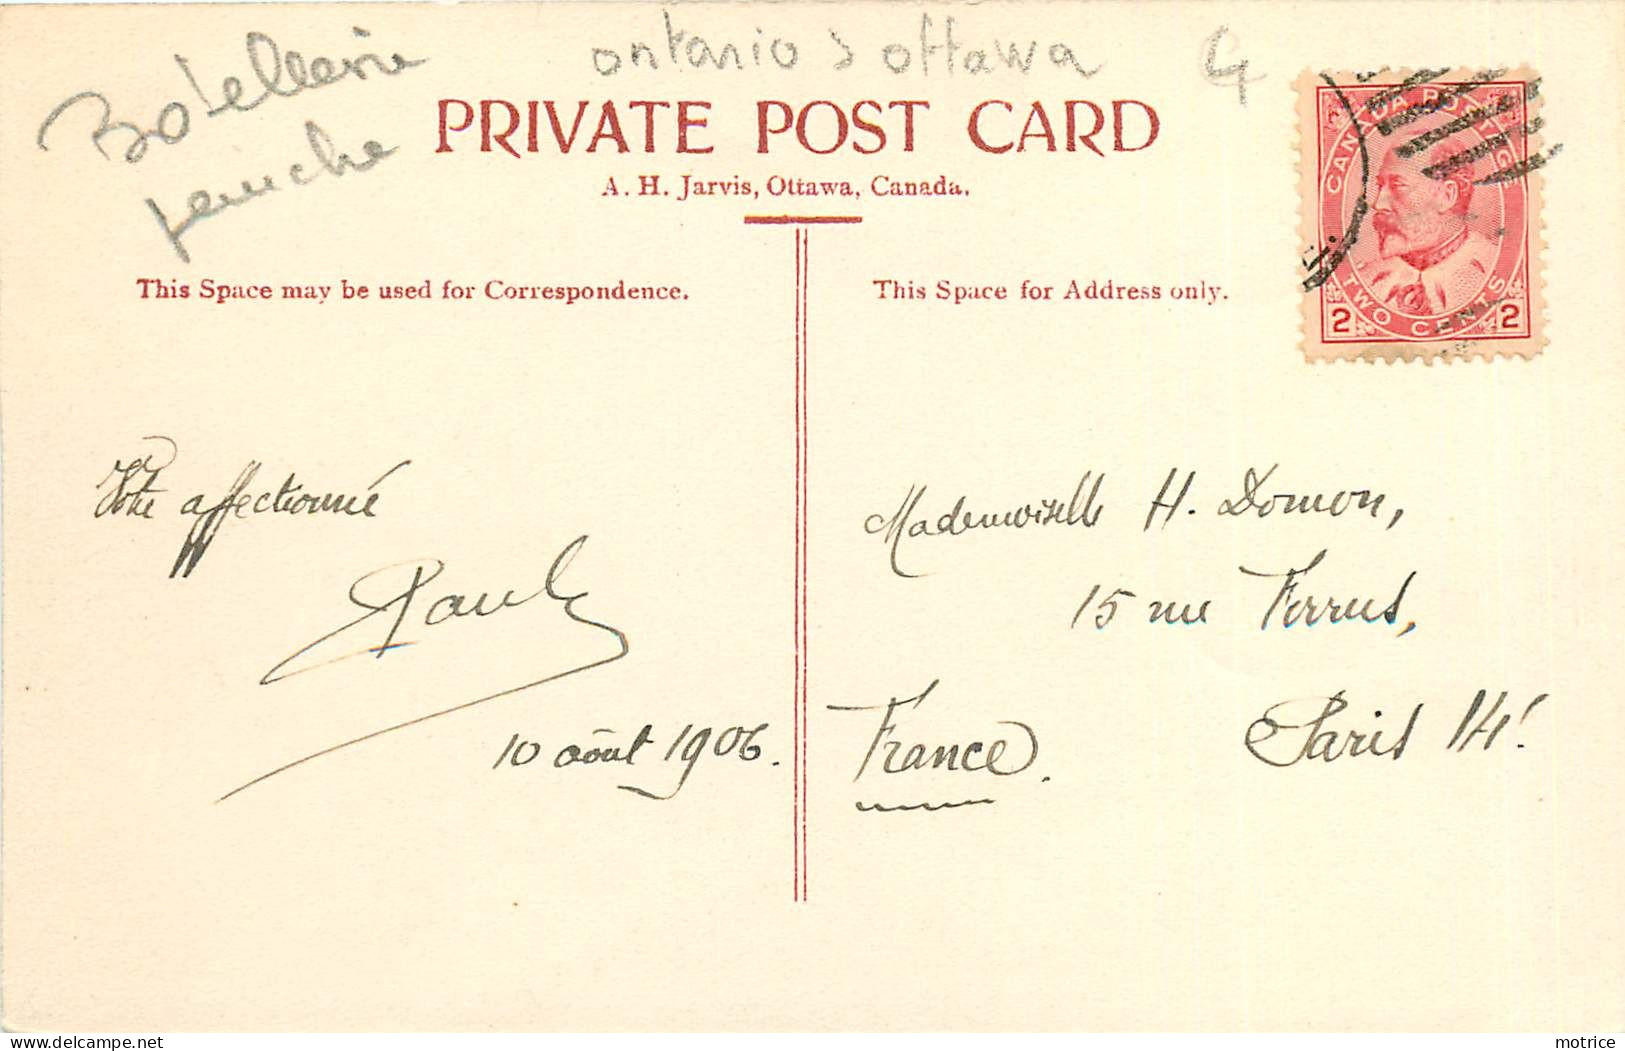 Botellerie
peniche
ontario > ottawa
4
PRIVATE POST CARD
A. H. Jarvis, Ottawa, Canada.
This Space may be used for Correspondence.
This Space for Address only.
CANADA POSTAGE
TWO CENTS
2 2
Votre affectionné
Paul
10 août 1906.
Mademoiselle H. Domon,
15 rue Ferrus,
Paris 14e
France.
delcampe.net
motrice